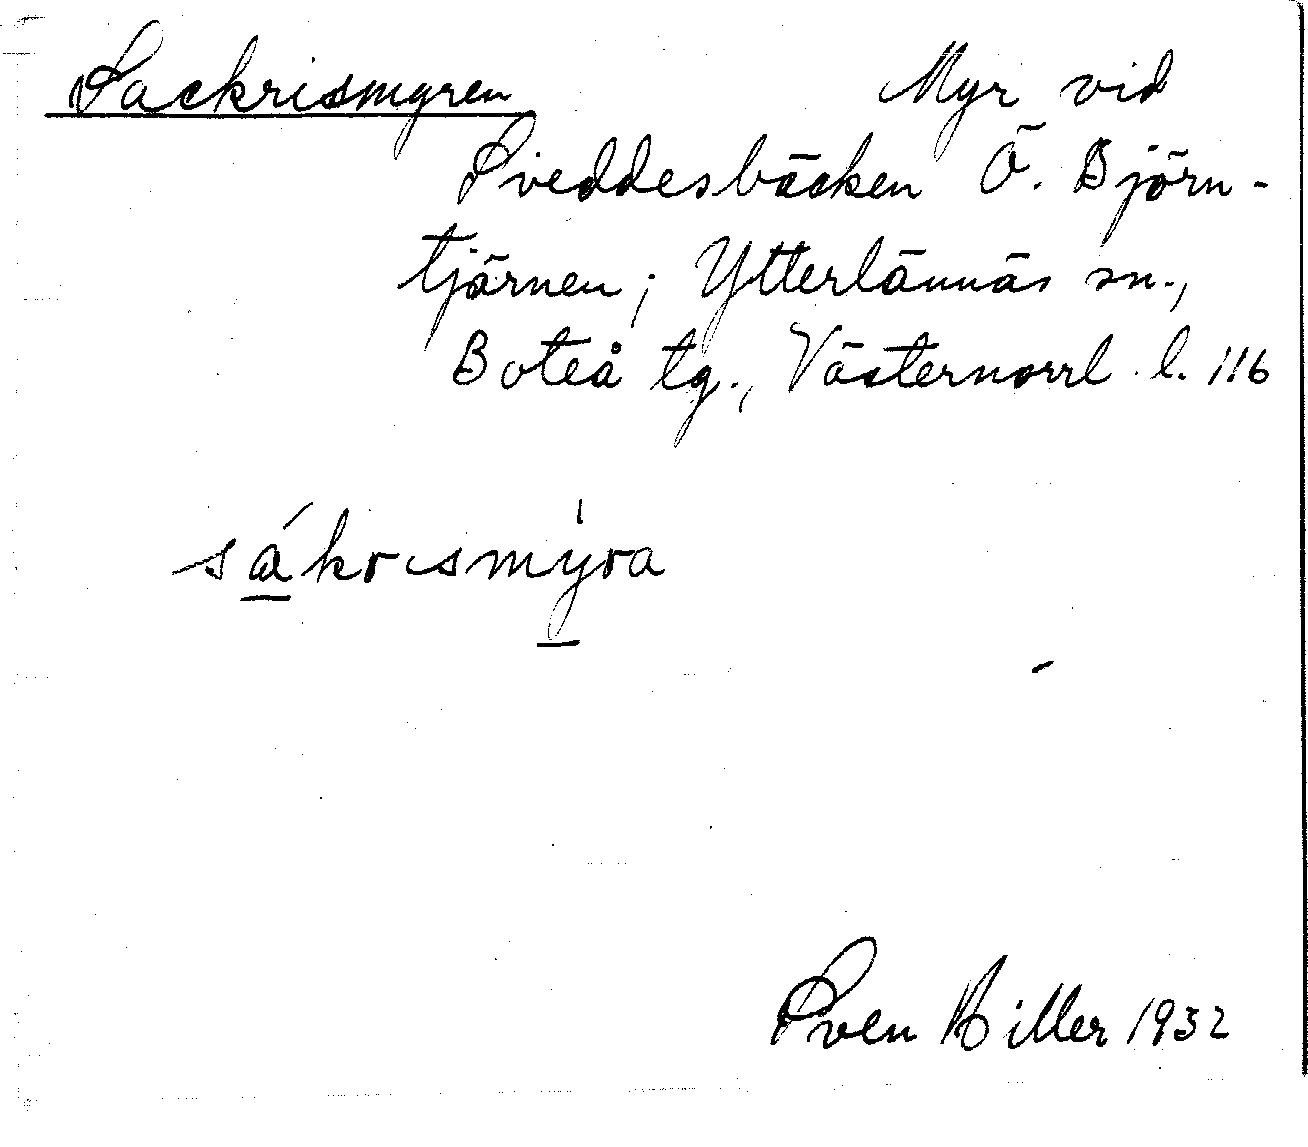 Sackrismyren Myr vid
Sveddesbäcken Ö. Björn-
tjärnen; Ytterlännäs sn.,
Boteå tg., Västernorrl. l. 116
sákrısmy̍ra
Sven Hiller 1932